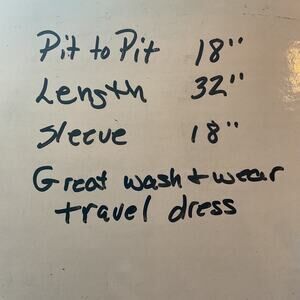 Pit to Pit 18"
Length 32"
Sleeve 18"
Great wash + wear
travel dress